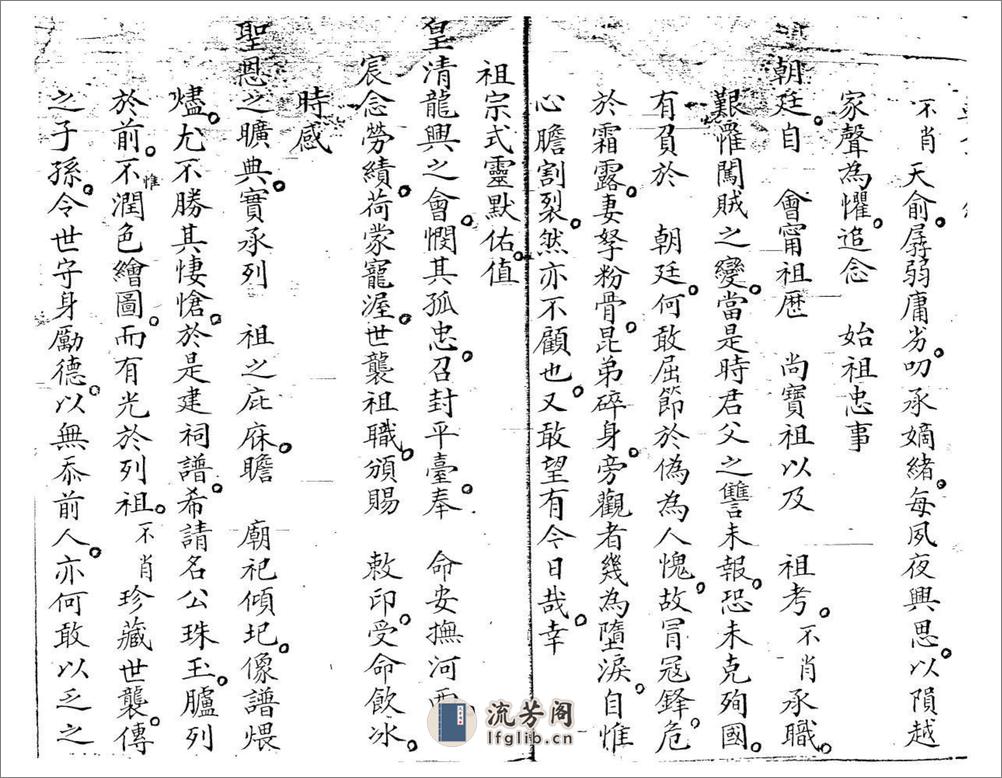 不肖天俞孱弱庸劣。叨承嫡緒。每夙夜興思。以隕越
家聲為懼。追念 始祖忠事
朝廷。自 會甯祖歷 尚寶祖以及 祖考。不肖承職。
艱罹闖賊之變。當是時君父之讐未報。恐未克殉國。
有負於 朝廷。何敢屈節於偽為人愧。故冐冦鋒。危
於霜露。妻孥粉骨。昆弟碎身。旁觀者幾為墮淚。自惟
心膽割裂。然亦不顧也。又敢望有今日哉。幸
祖宗式靈默佑。值
皇清龍興之會。憫其孤忠。召封平臺。奉 命安撫河西。
宸念勞績。荷蒙寵渥。世襲祖職。頒賜 敕印。受命飲冰。
時感
聖恩之曠典。實承列 祖之庇庥。瞻 廟祀傾圮。像譜煨
燼。尤不勝其悽愴。於是建祠譜。希請名公珠玉。臚列
於前。不惟潤色繪圖。而有光於列祖。不肖珍藏世襲。傳
之子孫。令世守身勵德。以無忝前人。亦何敢以乏之
流芳阁
lfglib.cn